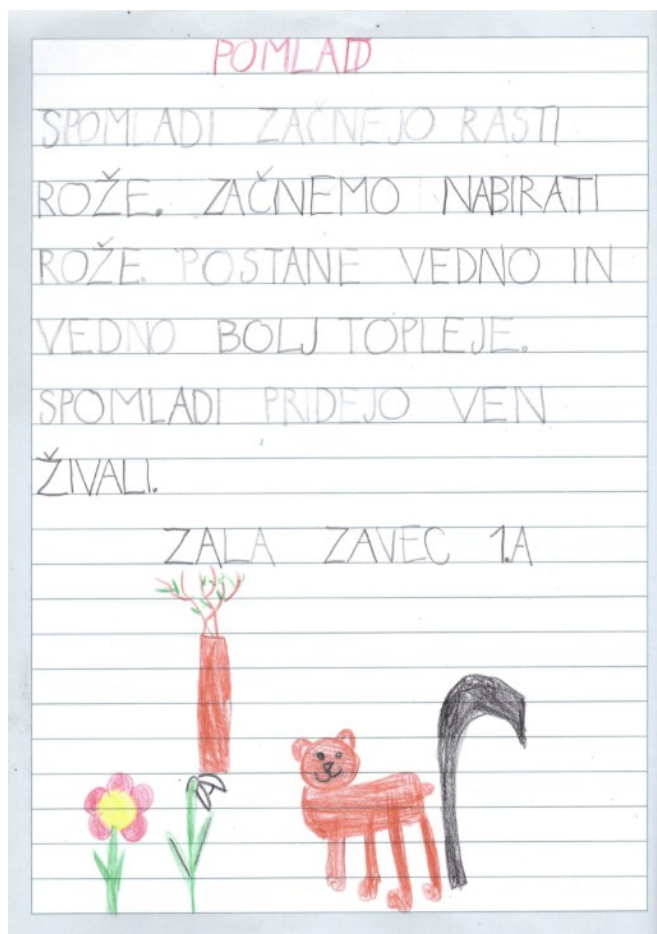 POMLAD
SPOMLADI ZAČNEJO RASTI
ROŽE. ZAČNEMO NABIRATI
ROŽE. POSTANE VEDNO IN
VEDNO BOLJ TOPLEJE.
SPOMLADI PRIDEJO VEN
ŽIVALI.
ZALA ZAVEC 1.A